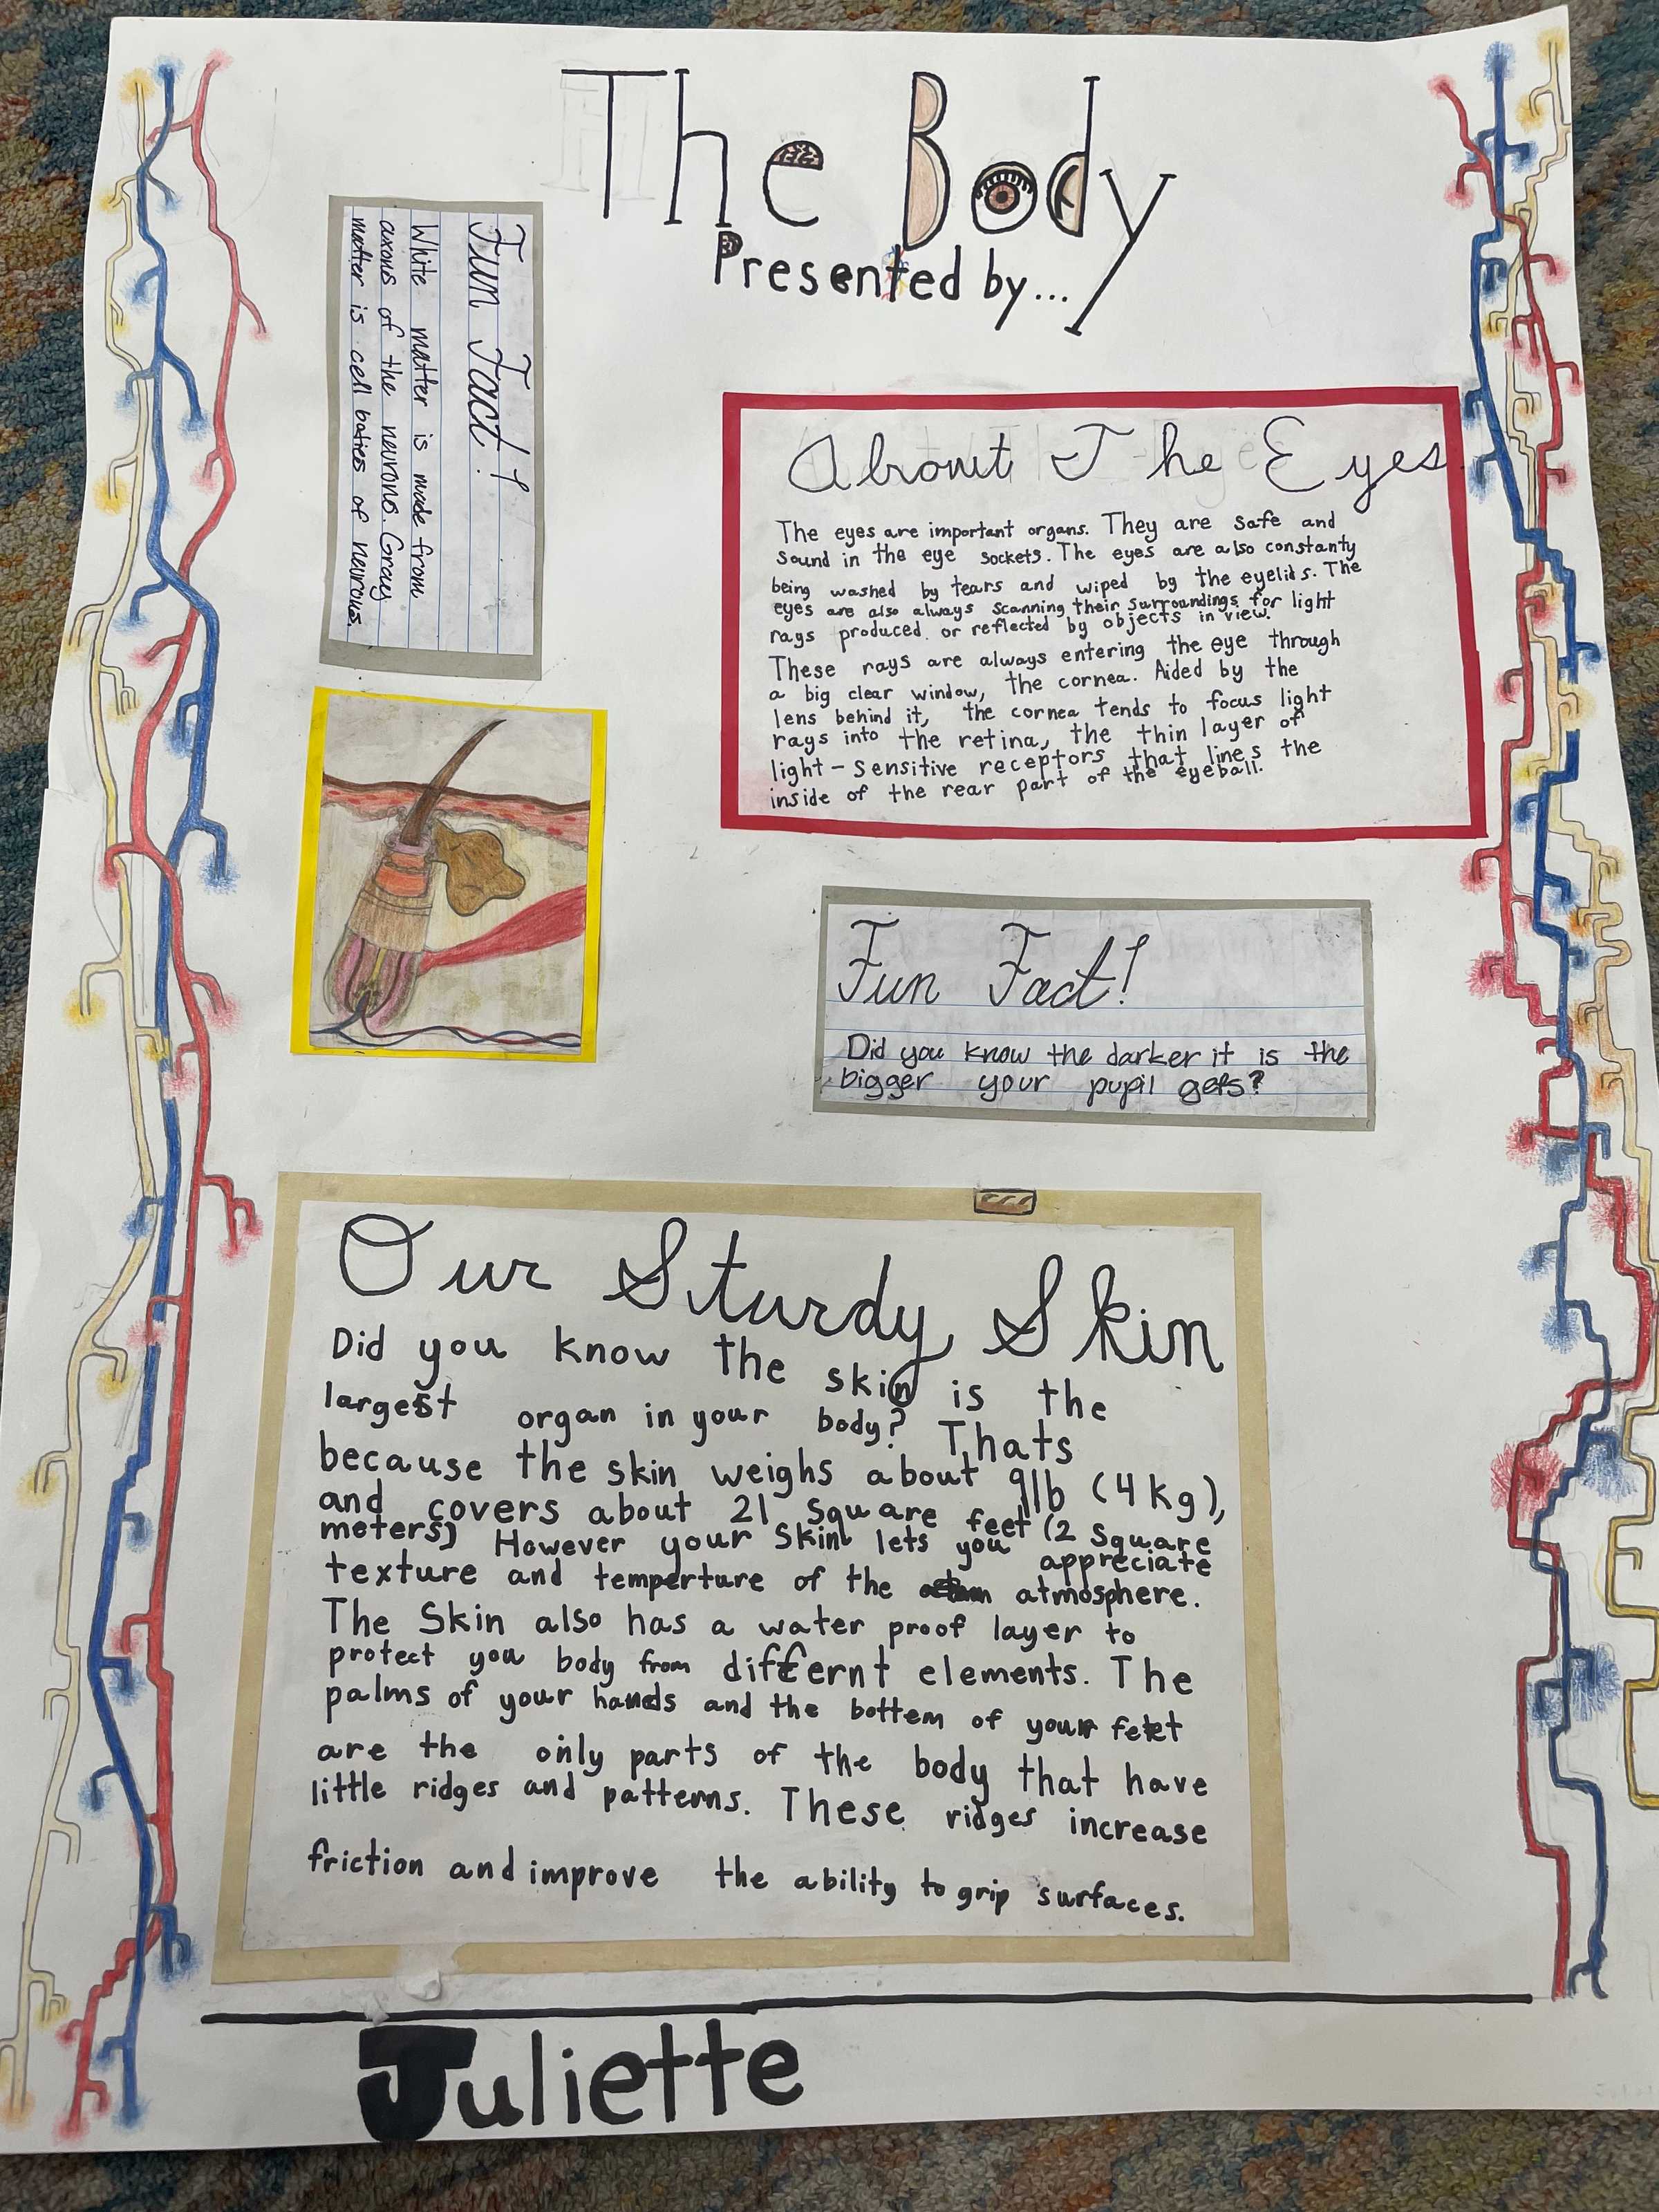 The Body
Presented by...
Fun Fact!
White matter is made from
axons of the neurons. Gray
matter is cell baties of neurons.
About The Eyes
The eyes are important organs. They are safe and
sound in the eye sockets. The eyes are also constanty
being washed by tears and wiped by the eyelids. The
eyes are also always scanning their surroundings for light
rays produced or reflected by objects in view.
These rays are always entering the eye through
a big clear window, the cornea. Aided by the
lens behind it, the cornea tends to focus light
rays into the retina, the thin layer of
light-sensitive receptors that lines the
inside of the rear part of the eyeball.
Fun Fact!
Did you know the darker it is the
bigger your pupil gets?
Our Sturdy Skin
Did you know the skin is the
largest organ in your body? Thats
because the skin weighs about 9lb (4kg),
and covers about 21 square feet (2 square
meters) However your skin lets you appreciate
texture and temperture of the atmosphere.
The Skin also has a water proof layer to
protect you body from differnt elements. The
palms of your hands and the bottem of your feet
are the only parts of the body that have
little ridges and patterns. These ridges increase
friction and improve the ability to grip surfaces.
Juliette